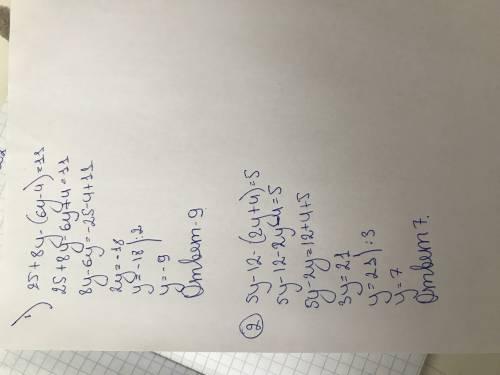 1)
25+8y-(6y-4)=11
25+8y-6y+4=11
8y-6y=-25-4+11
2y=-18
y=-18):2
y=-9
Ответ-9.
2
5y-12-(2y+4)=5
5y-12-2y-4=5
5y-2y=12+4+5
3y=21
y=21):3
y=7
Ответ 7.